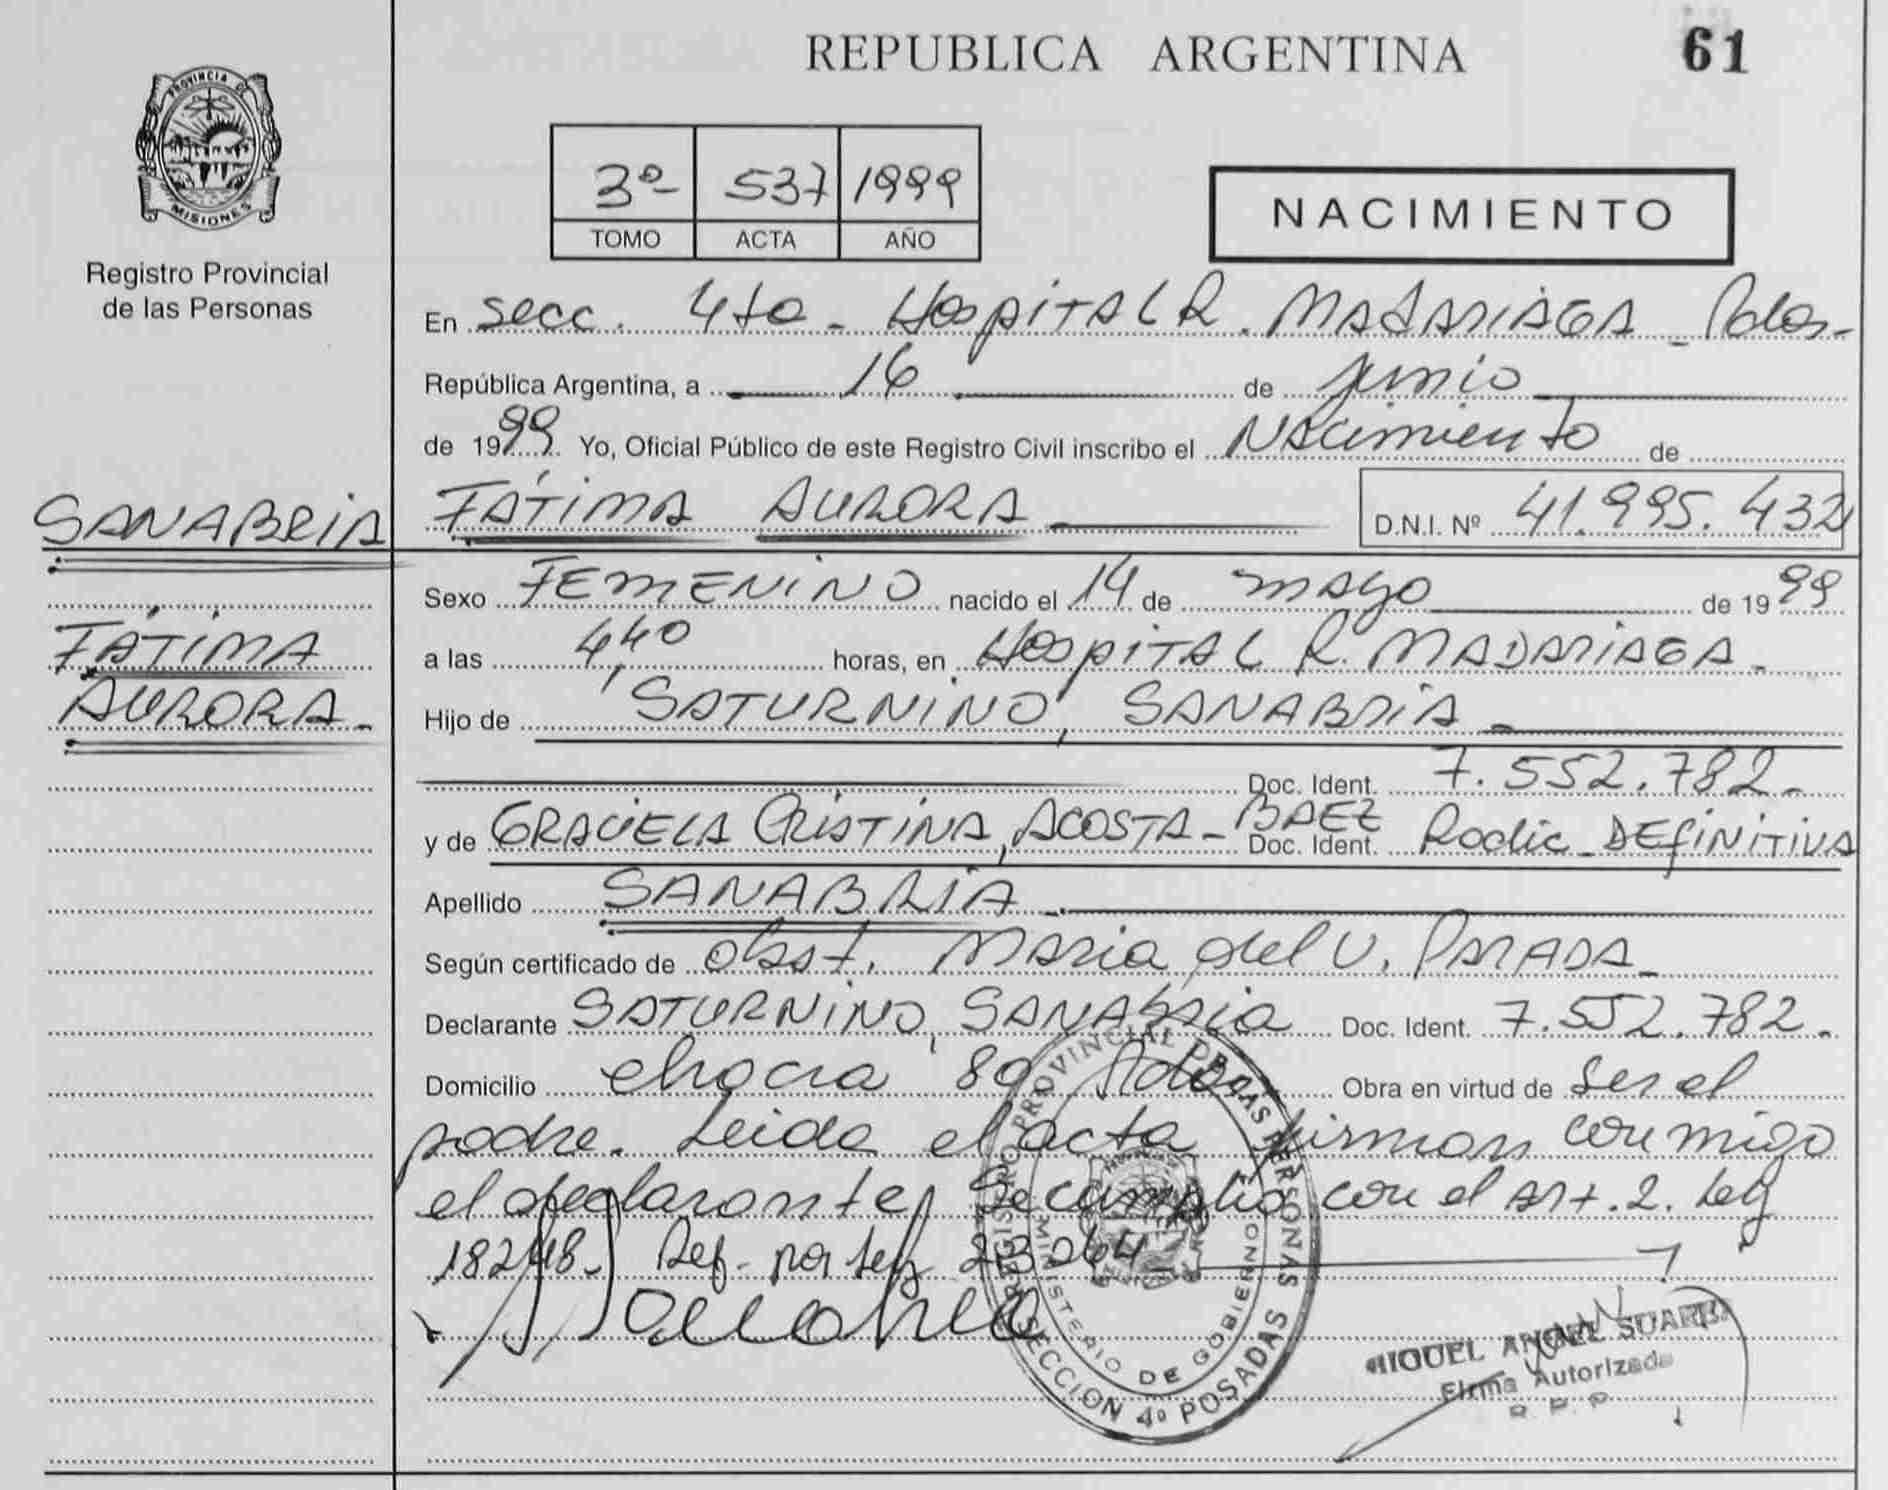 REPUBLICA ARGENTINA 61
PROVINCIA DE
MISIONES
Registro Provincial
de las Personas
3º- 537 1999
TOMO ACTA AÑO
NACIMIENTO
En secc. 4ta - Hospital R. Madariaga - Pdas.-
República Argentina, a 16 de junio
de 1999. Yo, Oficial Público de este Registro Civil inscribo el Nacimiento de
SANABRIA
FÁTIMA AURORA D.N.I. Nº 41.995.432
FÁTIMA
AURORA.-
Sexo FEMENINO nacido el 14 de mayo de 1999
a las 4,40 horas, en Hospital R. MADARIAGA.-
Hijo de SATURNINO, SANABRIA.-
Doc. Ident. 7.552.782.-
y de GRACIELA CRISTINA, ACOSTA-BAEZ Doc. Ident. Radic. DEFINITIVA
Apellido SANABRIA.-
Según certificado de obst. Maria del V. PARADA.-
Declarante SATURNINO, SANABRIA Doc. Ident. 7.552.782.-
Domicilio chacra 89 Pdas. Obra en virtud de ser el
padre. Leida el acta firman conmigo
el declarante, Se cumplió con el art. 2. Ley
18248.- Ref. por Ley 23264-
REGISTRO PROVINCIAL DE LAS PERSONAS
MINISTERIO DE GOBIERNO
SECCION 4º POSADAS
MIGUEL ANGEL SUAREZ
Firma Autorizada
R. P. P.